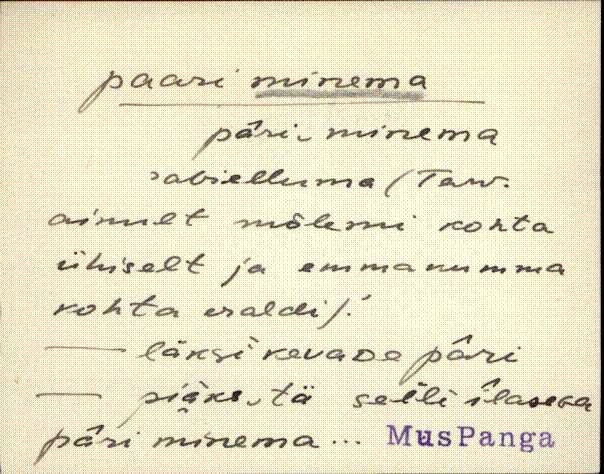 paari minema
pâri minema
abielluma (Tarv.
ainult mõlemi kohta
ühiselt ja emma kumma
kohta eraldi).
— läksi kevade pâri
— piäks, tä selli ilasesa
pâri minema ... MusPanga